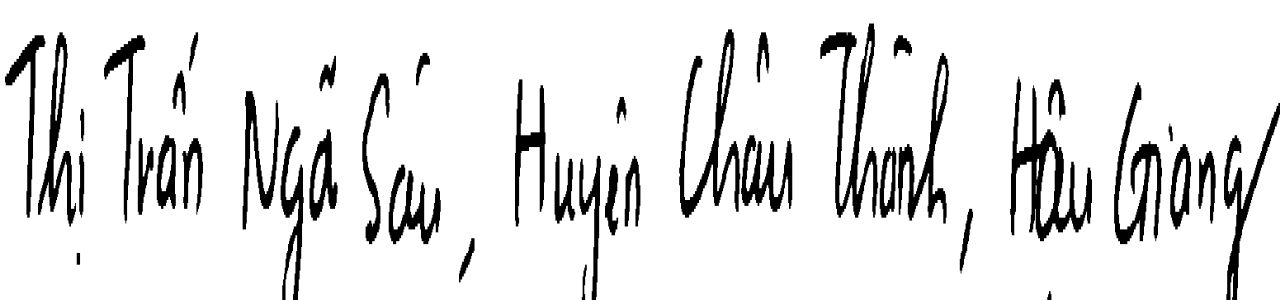 Thị Trấn Ngã Sáu, Huyện Châu Thành, Hậu Giang